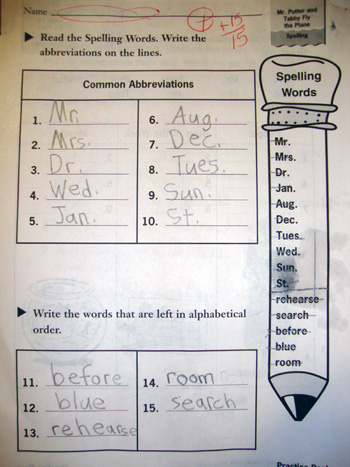 Name
+15
15
Mr. Putter and
Tabby Fly
the Plane
Spelling
Read the Spelling Words. Write the
abbreviations on the lines.
Common Abbreviations
1. Mr.
2. Mrs.
3. Dr.
4. Wed.
5. Jan.
6. Aug.
7. Dec.
8. Tues.
9. Sun.
10. St.
Spelling
Words
Mr.
Mrs.
Dr.
Jan.
Aug.
Dec.
Tues.
Wed.
Sun.
St.
rehearse
search
before
blue
room
Write the words that are left in alphabetical
order.
11. before
12. blue
13. rehearse
14. room
15. search